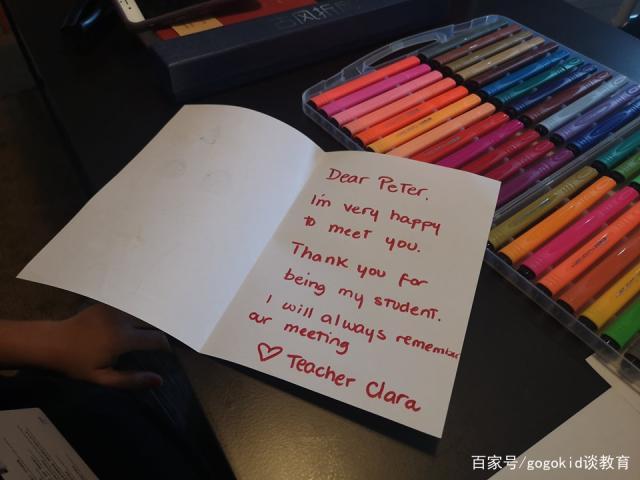 Dear Peter,
I'm very happy
to meet you.
Thank you for
being my student.
I will always remember
our meeting
♡ Teacher Clara
百家号/gogokid谈教育